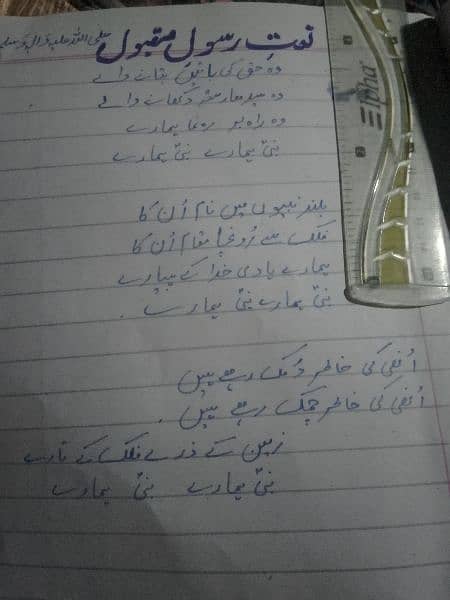 نعتِ رسولِ مقبول صلی اللہ علیہ وآلہ وسلم
وہ حق کی باتیں بتانے والے
وہ سیدھا رستہ دکھانے والے
وہ راہبر رہنما ہمارے
نبیؐ ہمارے نبیؐ ہمارے
بلند نبیوں میں نام اُن کا
فلک سے اُونچا مقام اُن کا
ہمارے ہادی خدا کے پیارے
نبیؐ ہمارے نبیؐ ہمارے
اُنہی کی خاطر دمک رہے ہیں
اُنہی کی خاطر چمک رہے ہیں
زمین کے ذرے فلک کے تارے
نبیؐ ہمارے نبیؐ ہمارے
alpha